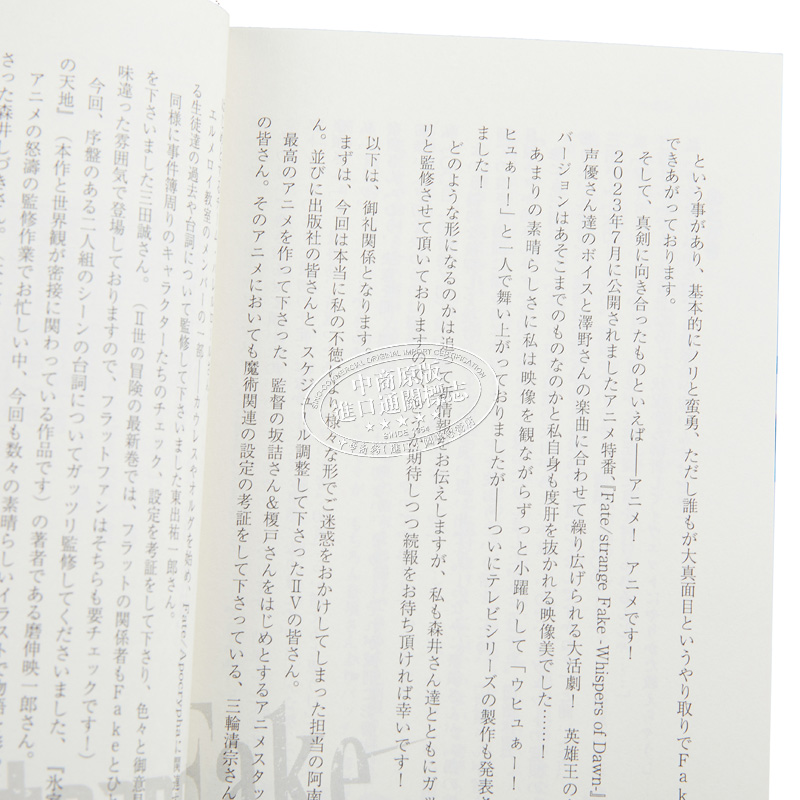 という事があり、基本的にノリと蛮勇、ただし誰もが大真面目というやり取りでFak
できあがっております。
そして、真剣に向き合ったものといえば――アニメ！　アニメです！
2023年7月に公開されましたアニメ特番、『Fate/strange Fake -Whispers of Dawn-』
声優さん達のボイスと澤野さんの楽曲に合わせて繰り広げられる大活劇！　英雄王の
バージョンはあそこまでのものなのかと私自身も度肝を抜かれる映像美でした……！
あまりの素晴らしさに私は映像を観ながらずっと小躍りして「ウヒュぁー！
ヒュぁー！」と一人で舞い上がっておりましたが――ついにテレビシリーズの製作も発表さ
ました！
どのような形になるのかは追って新情報をお伝えしますが、私も森井さん達とともにガッ
リと監修させて頂いておりますので、期待しつつ続報をお待ち頂ければ幸いです！
以下は、御礼関係となります。
まずは、今回は本当に私の不徳により様々な形でご迷惑をおかけしてしまった担当の阿南
ん。並びに出版社の皆さんと、スケジュール調整して下さったⅡⅤの皆さん。
最高のアニメを作って下さった、監督の坂詰さん＆榎戸さんをはじめとするアニメスタッ
の皆さん。そのアニメにおいても魔術関連の設定の考証をして下さっている、三輪清宗さん
エルメロイ教室のメンバーの一部――カウレスやオルグを始め、Fate/Apocryphaに関連す
る生徒達の過去や台詞について監修して下さいました東出祐一郎さん。
同様に事件簿周りのキャラクターたちのチェック、設定を考証をして下さり、色々と御意見
を下さいました三田誠さん。（Ⅱ世の冒険の最新巻では、フラットの関係者もFakeとひと
味違った雰囲気で登場しておりますので、フラットファンはそちらも要チェックです！）
今回、序盤のある二人組のシーンの台詞についてガッツリ監修してくださいました、『氷室
の天地』（本作と世界観が密接に関わっている作品です）の著者である磨伸映一郎さん。
アニメの怒濤の監修作業でお忙しい中、今回も数々の素晴らしいイラストで物語を
さった森井しづきさん。
Fake
中商原版
進口通關標誌
SINCE 1994